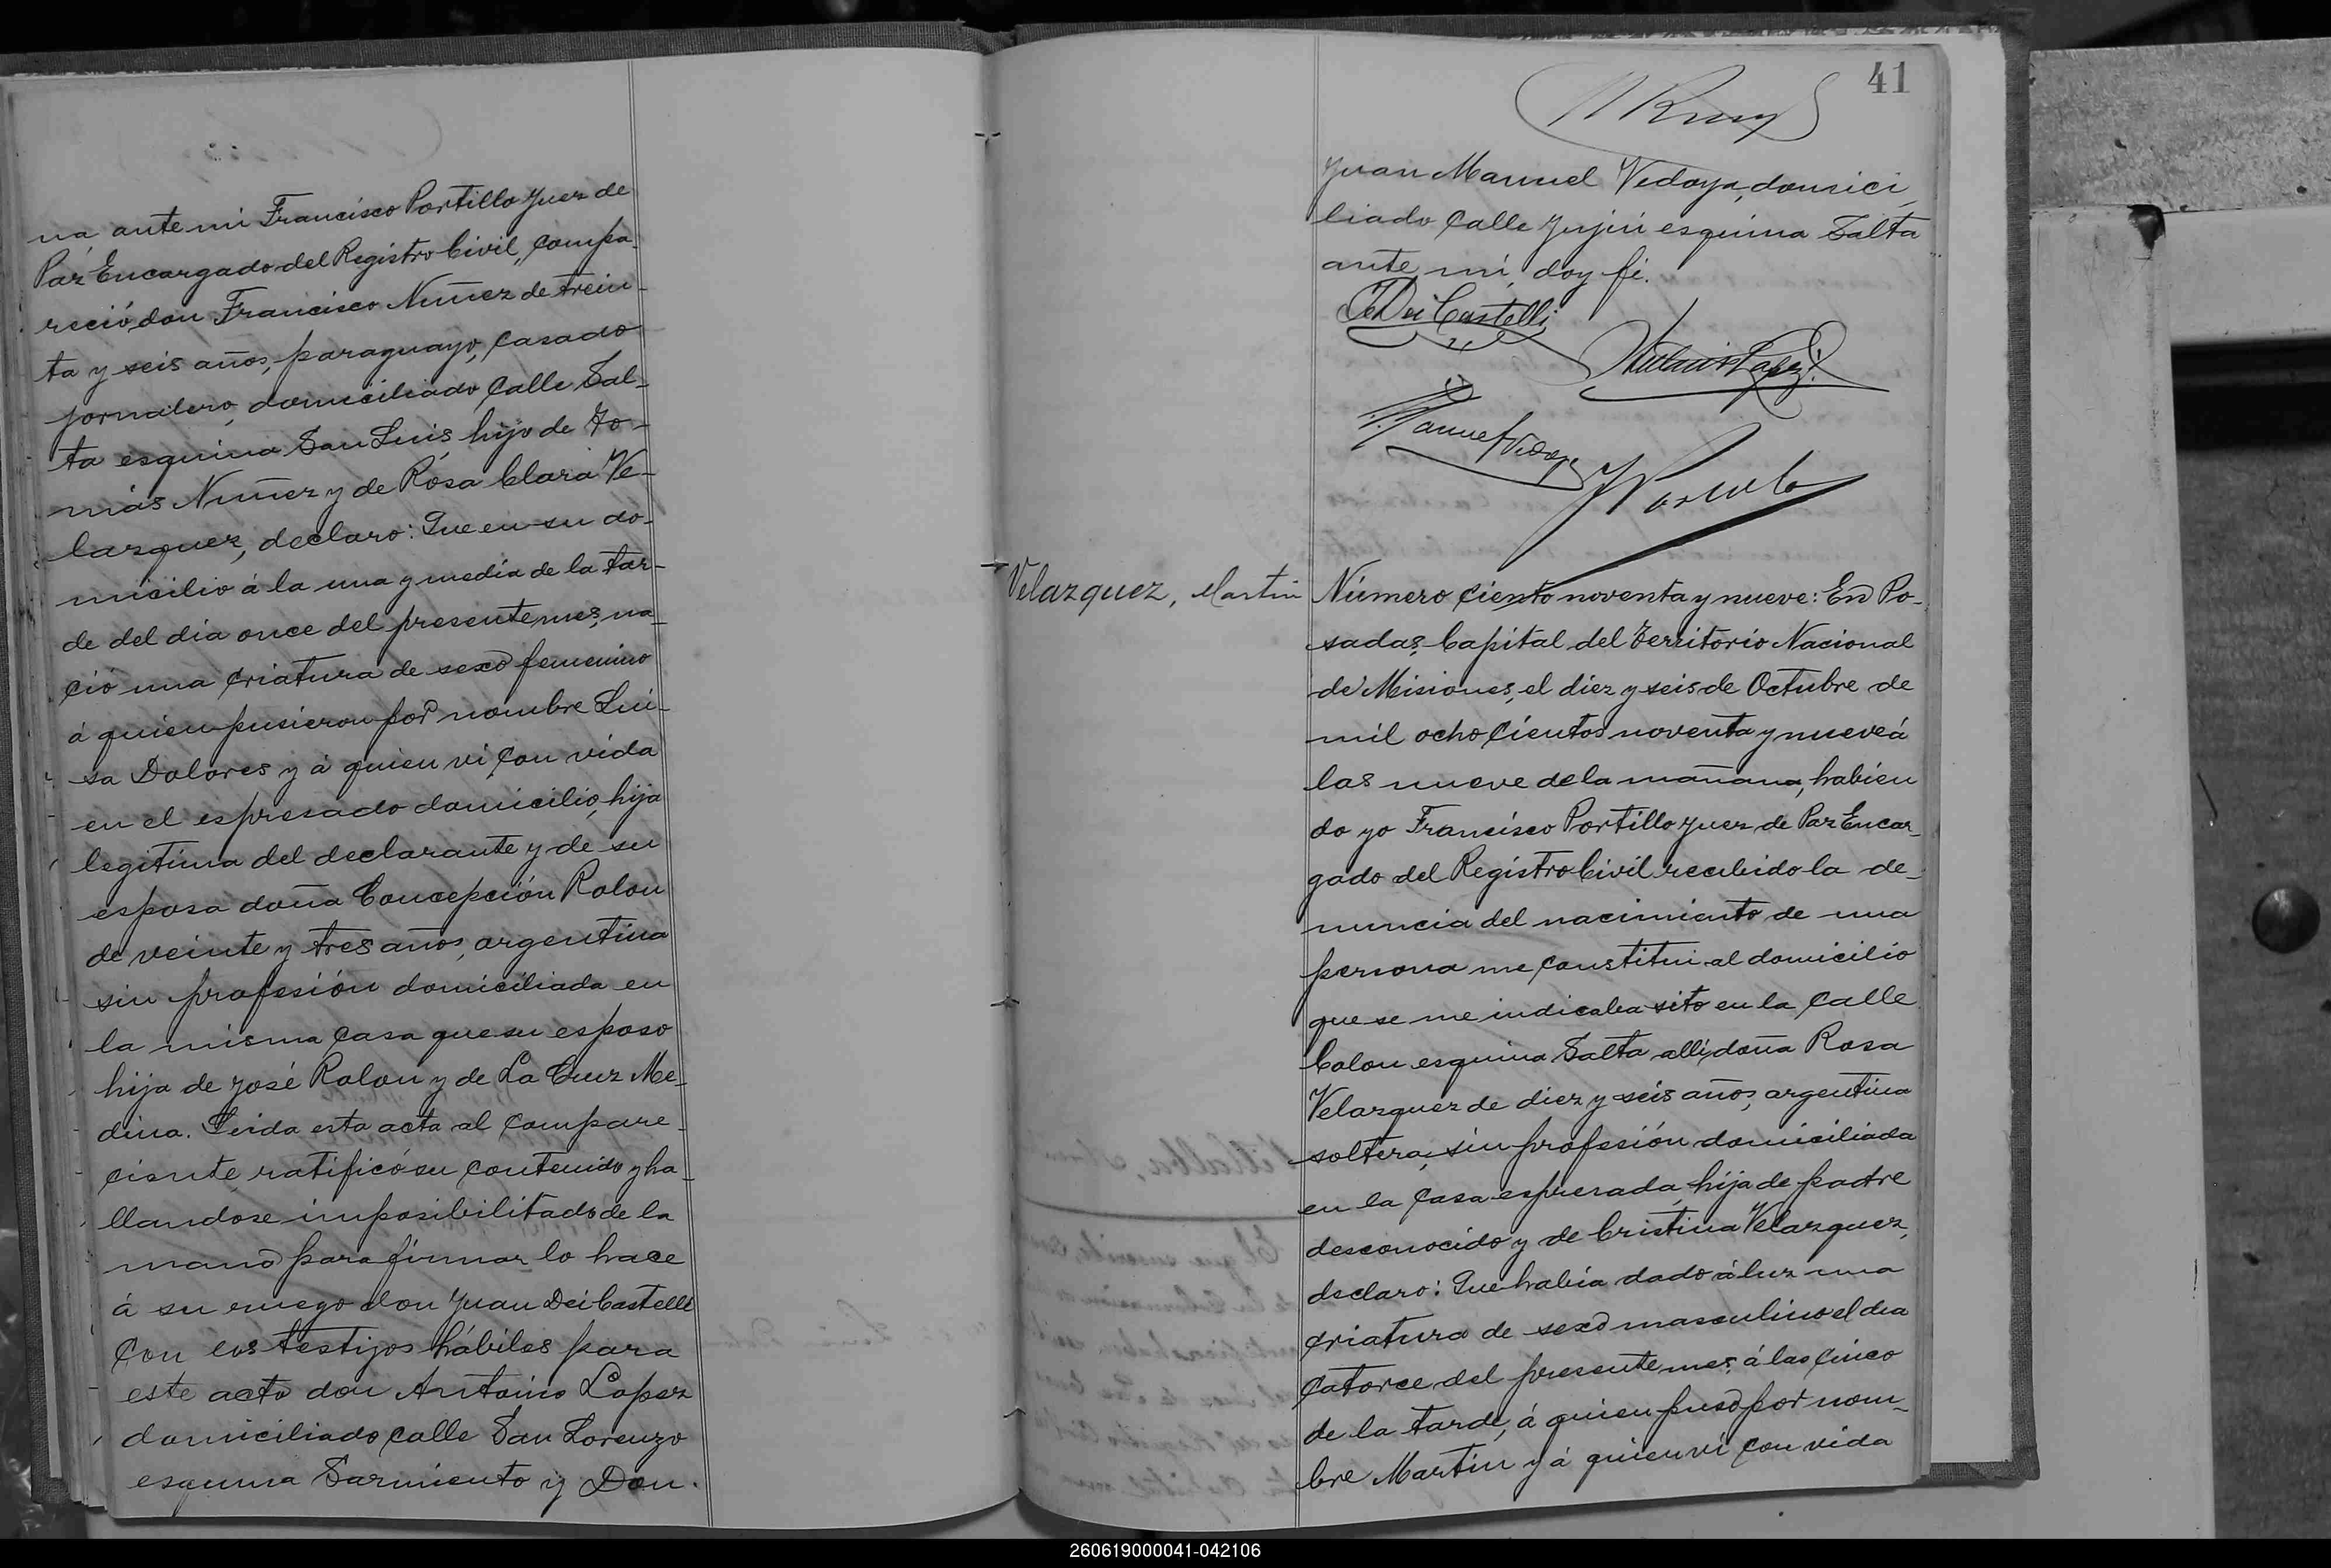 na ante mi Francisco Portillo Juez de
Paz Encargado del Registro Civil, compa-
reció don Francisco Nuñez de trein-
ta y seis años, paraguayo, casado
jornalero, domiciliado calle Sal-
ta esquina San Luis, hijo de To-
más Nuñez y de Rosa Clara Ve-
lazquez, declaro: Que en su do-
micilio á la una y media de la tar-
de del dia once del presente mes, na-
ció una criatura de sexo femenino
á quien pusieron por nombre Lui-
sa Dolores y á quien vi con vida
en el espresado domicilio, hija
legitima del declarante y de su
esposa doña Concepción Rolon
de veinte y tres años, argentina
sin profesión domiciliada en
la misma casa que su esposo
hija de José Rolon y de La Cruz Me-
dina. Leida esta acta al compare-
ciente, ratificó su contenido y ha-
llandose imposibilitado de la
mano para firmar lo hace
á su ruego don Juan Dei Castelli
con los testigos hábiles para
este acto don Antonio Lopez
domiciliado calle San Lorenzo
esquina Sarmiento y Don
41
Juan Manuel Vedoya, domici-
liado calle Jujui esquina Salta
ante mi, doy fé.
Dei Castelli
Antonio Lopez
J. Manuel Vedoya
F Portillo
Velazquez, Martin
Número ciento noventa y nueve: En Po-
sadas, Capital del Territorio Nacional
de Misiones, el diez y seis de Octubre de
mil ocho cientos noventa y nueve á
las nueve de la mañana, habien
do yo Francisco Portillo Juez de Paz Encar-
gado del Registro Civil recibido la de-
nuncia del nacimiento de una
persona me constitui al domicilio
que se me indicaba sito en la calle
Colon esquina Salta alli doña Rosa
Velazquez de diez y seis años, argentina
soltera, sin profesión domiciliada
en la casa espresada, hija de padre
desconocido y de Cristina Velazquez,
declaro: Que habia dado á luz una
criatura de sexo masculino el dia
catorce del presente mes, á las cinco
de la tarde, á quien puso por nom-
bre Martin y á quien vi con vida
260619000041-042106